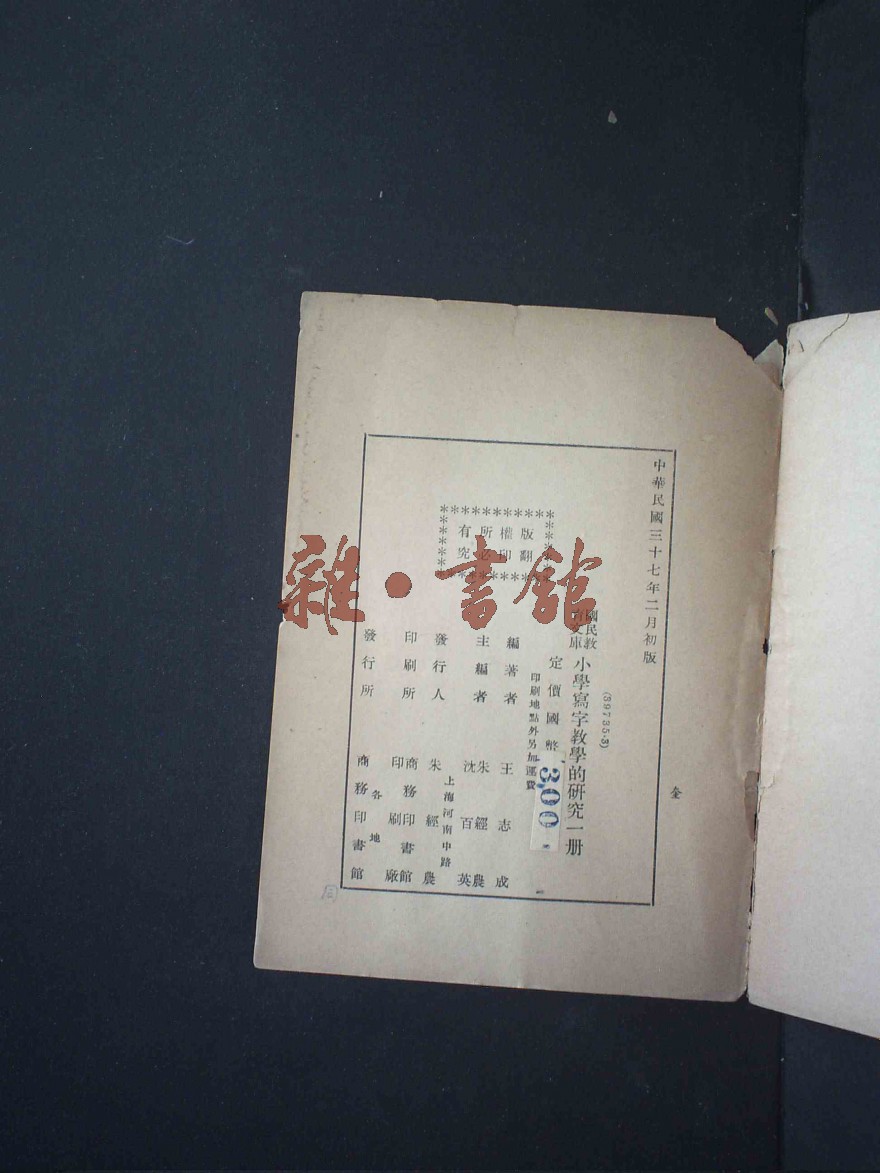 中華民國三十七年二月初版
(59735·3)
國民教育文庫
小學寫字教學的研究一册
定價國幣
3,00.
印刷地點外另加運費
版權所有
翻印必究
編著者 王志成
主編者 朱經農
沈百英
發行人 朱經農
上海河南中路
印刷所 商務印書館
印刷廠
發行所 商務印書館
各地
全
雜·書館